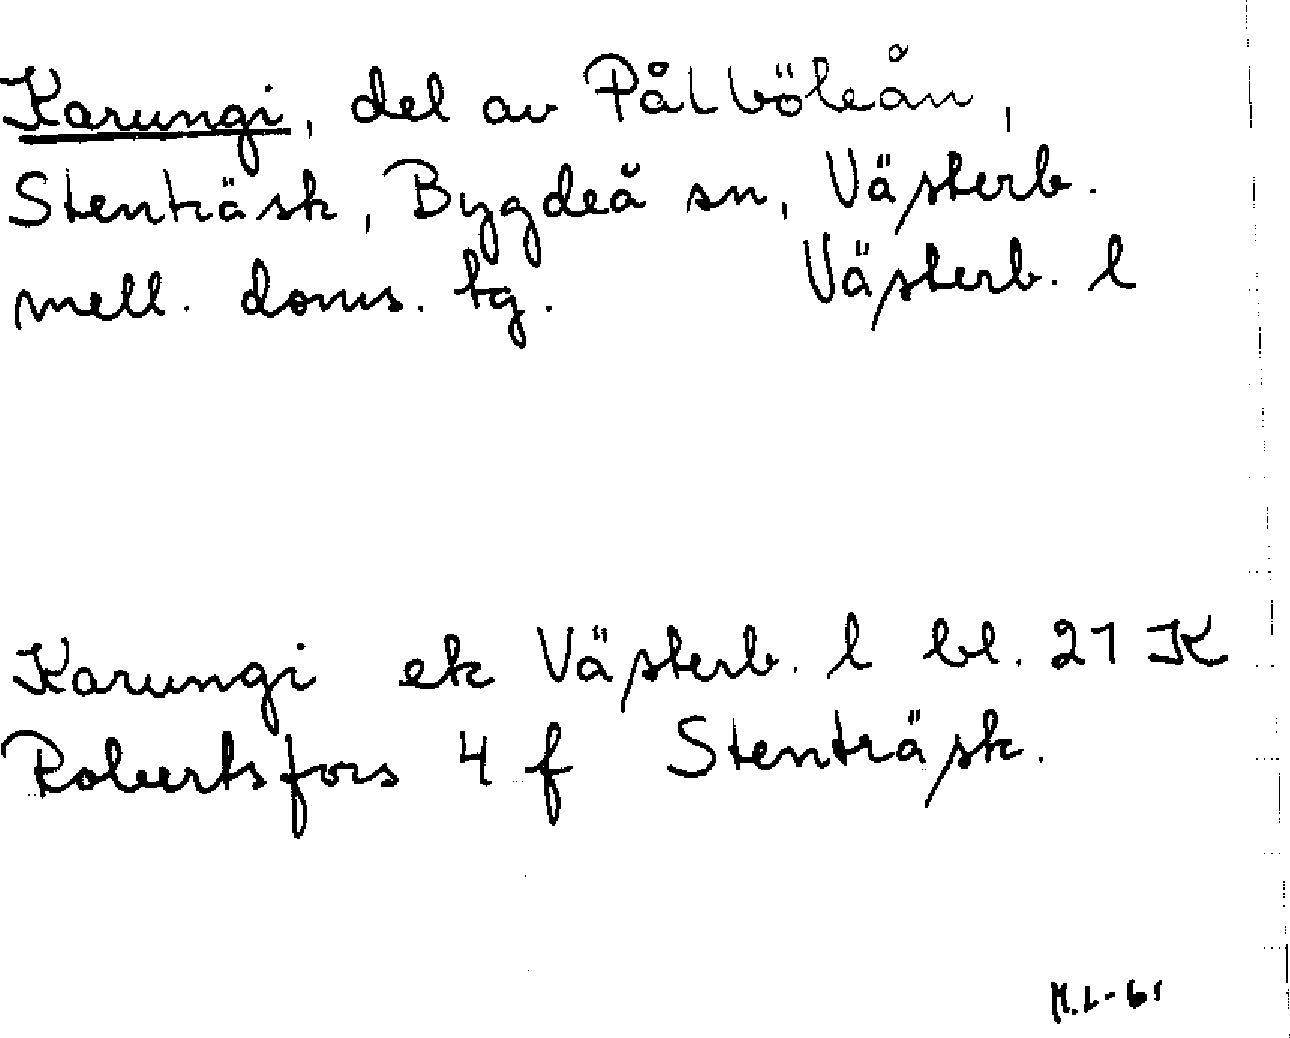 Karungi, del av Pålböleån,
Stenträsk, Bygdeå sn, Västerb.
mell. doms. tg. Västerb. l
Karungi ek Västerb. l bl. 21 K
Robertsfors 4 f Stenträsk.
M.L-61